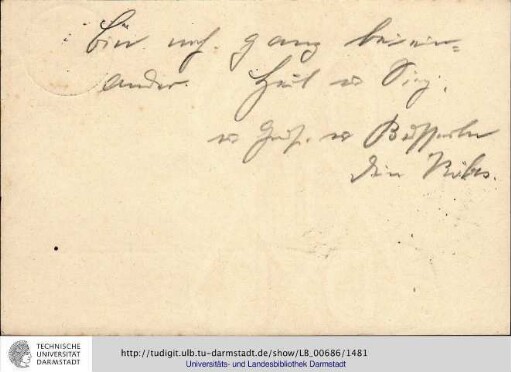 Bin noch ganz beiein=
ander. Heil u Sieg,
u Gruß. u
Dein
TECHNISCHE
UNIVERSITÄT
DARMSTADT
http://tudigit.ulb.tu-darmstadt.de/show/LB_00686/1481
Universitäts- und Landesbibliothek Darmstadt